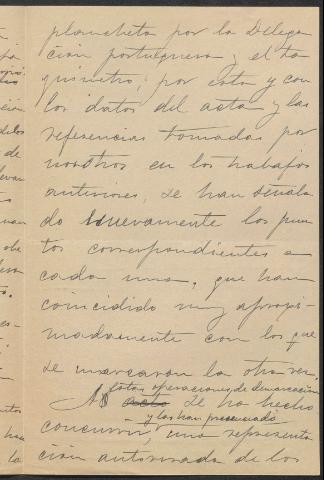 plancheta por la Delega
ción portuguesa, el ta
químetro, por esta y con
los datos del acta y las
referencias tomadas por
nosotros en los trabajos
anteriores, se han señala
do nuevamente los pun
tos correspondientes a
cada una, que han
coincidido muy aproxi
madamente con los que
se marcaron la otra vez.
estas operaciones de demarcación
A acto se ha hecho
y las han presenciado
concurrir, una representa
ción autorizada de los